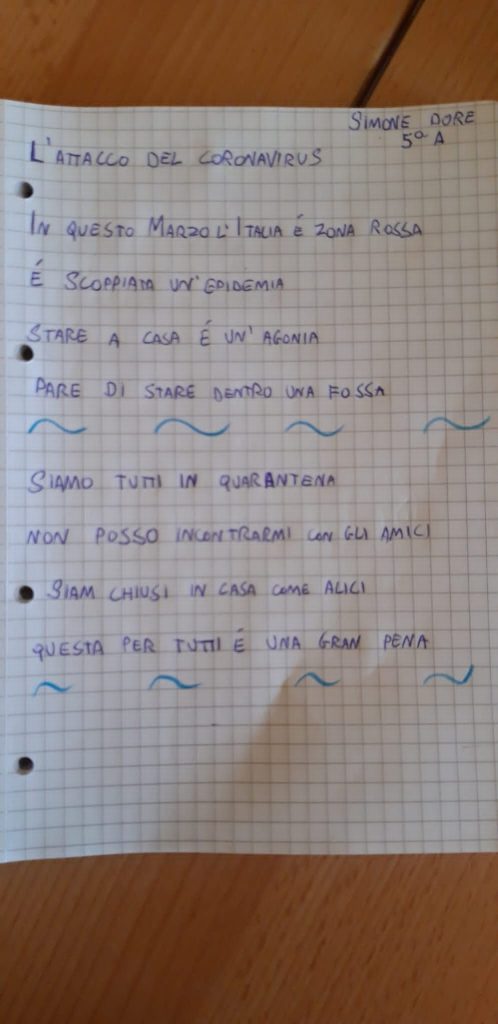 SIMONE DORE
5ª A
L'ATTACCO DEL CORONAVIRUS
IN QUESTO MARZO L'ITALIA É ZONA ROSSA
É SCOPPIATA UN'EPIDEMIA
STARE A CASA É UN'AGONIA
PARE DI STARE DENTRO UNA FOSSA
SIAMO TUTTI IN QUARANTENA
NON POSSO INCONTRARMI CON GLI AMICI
SIAM CHIUSI IN CASA COME ALICI
QUESTA PER TUTTI É UNA GRAN PENA